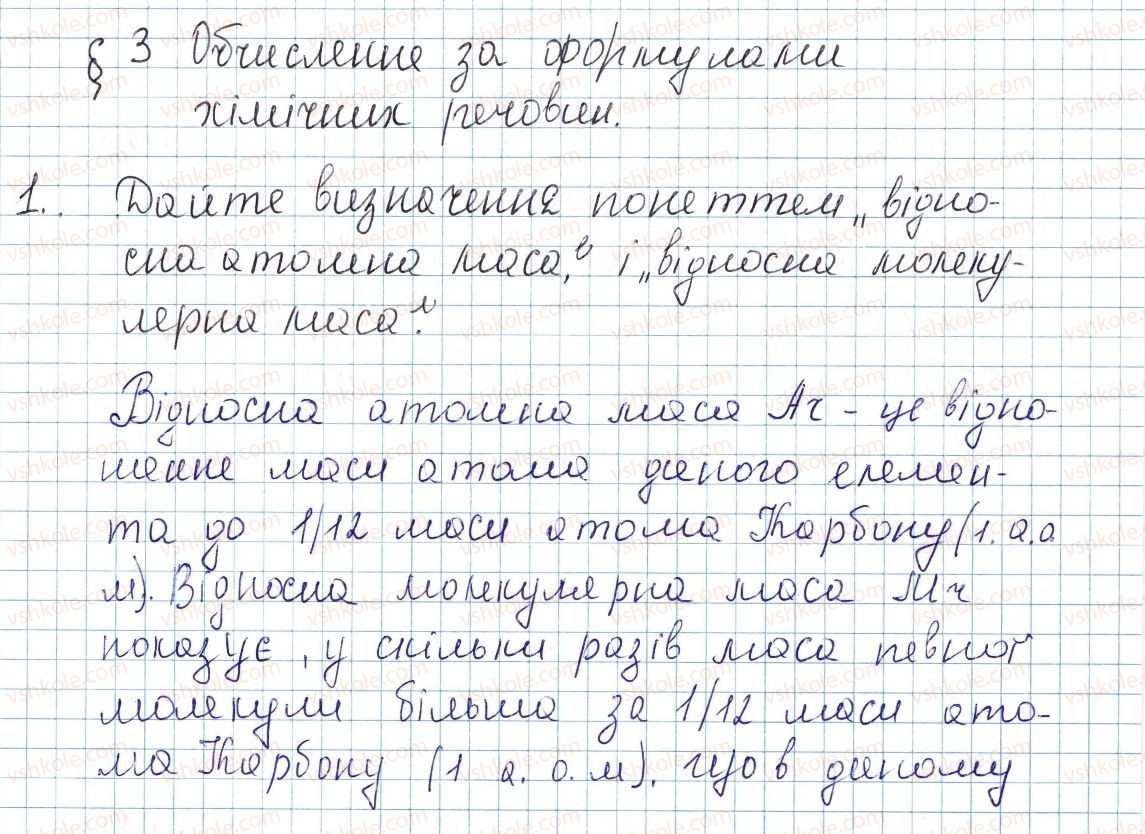 § 3 Обчислення за формулами
хімічних речовин.
1.. Дайте визначення поняттям „відно-
сна атомна маса,“ і „відносна молеку-
лярна маса“.
Відносна атомна маса Ar - це відно-
шення маси атома даного елемен-
та до 1/12 маси атома Карбону (1. а.о
м). Відносна молекулярна маса Mr
показує, у скільки разів маса певної
молекули більша за 1/12 маси ато-
ма Карбону (1 а. о. м). що в даному